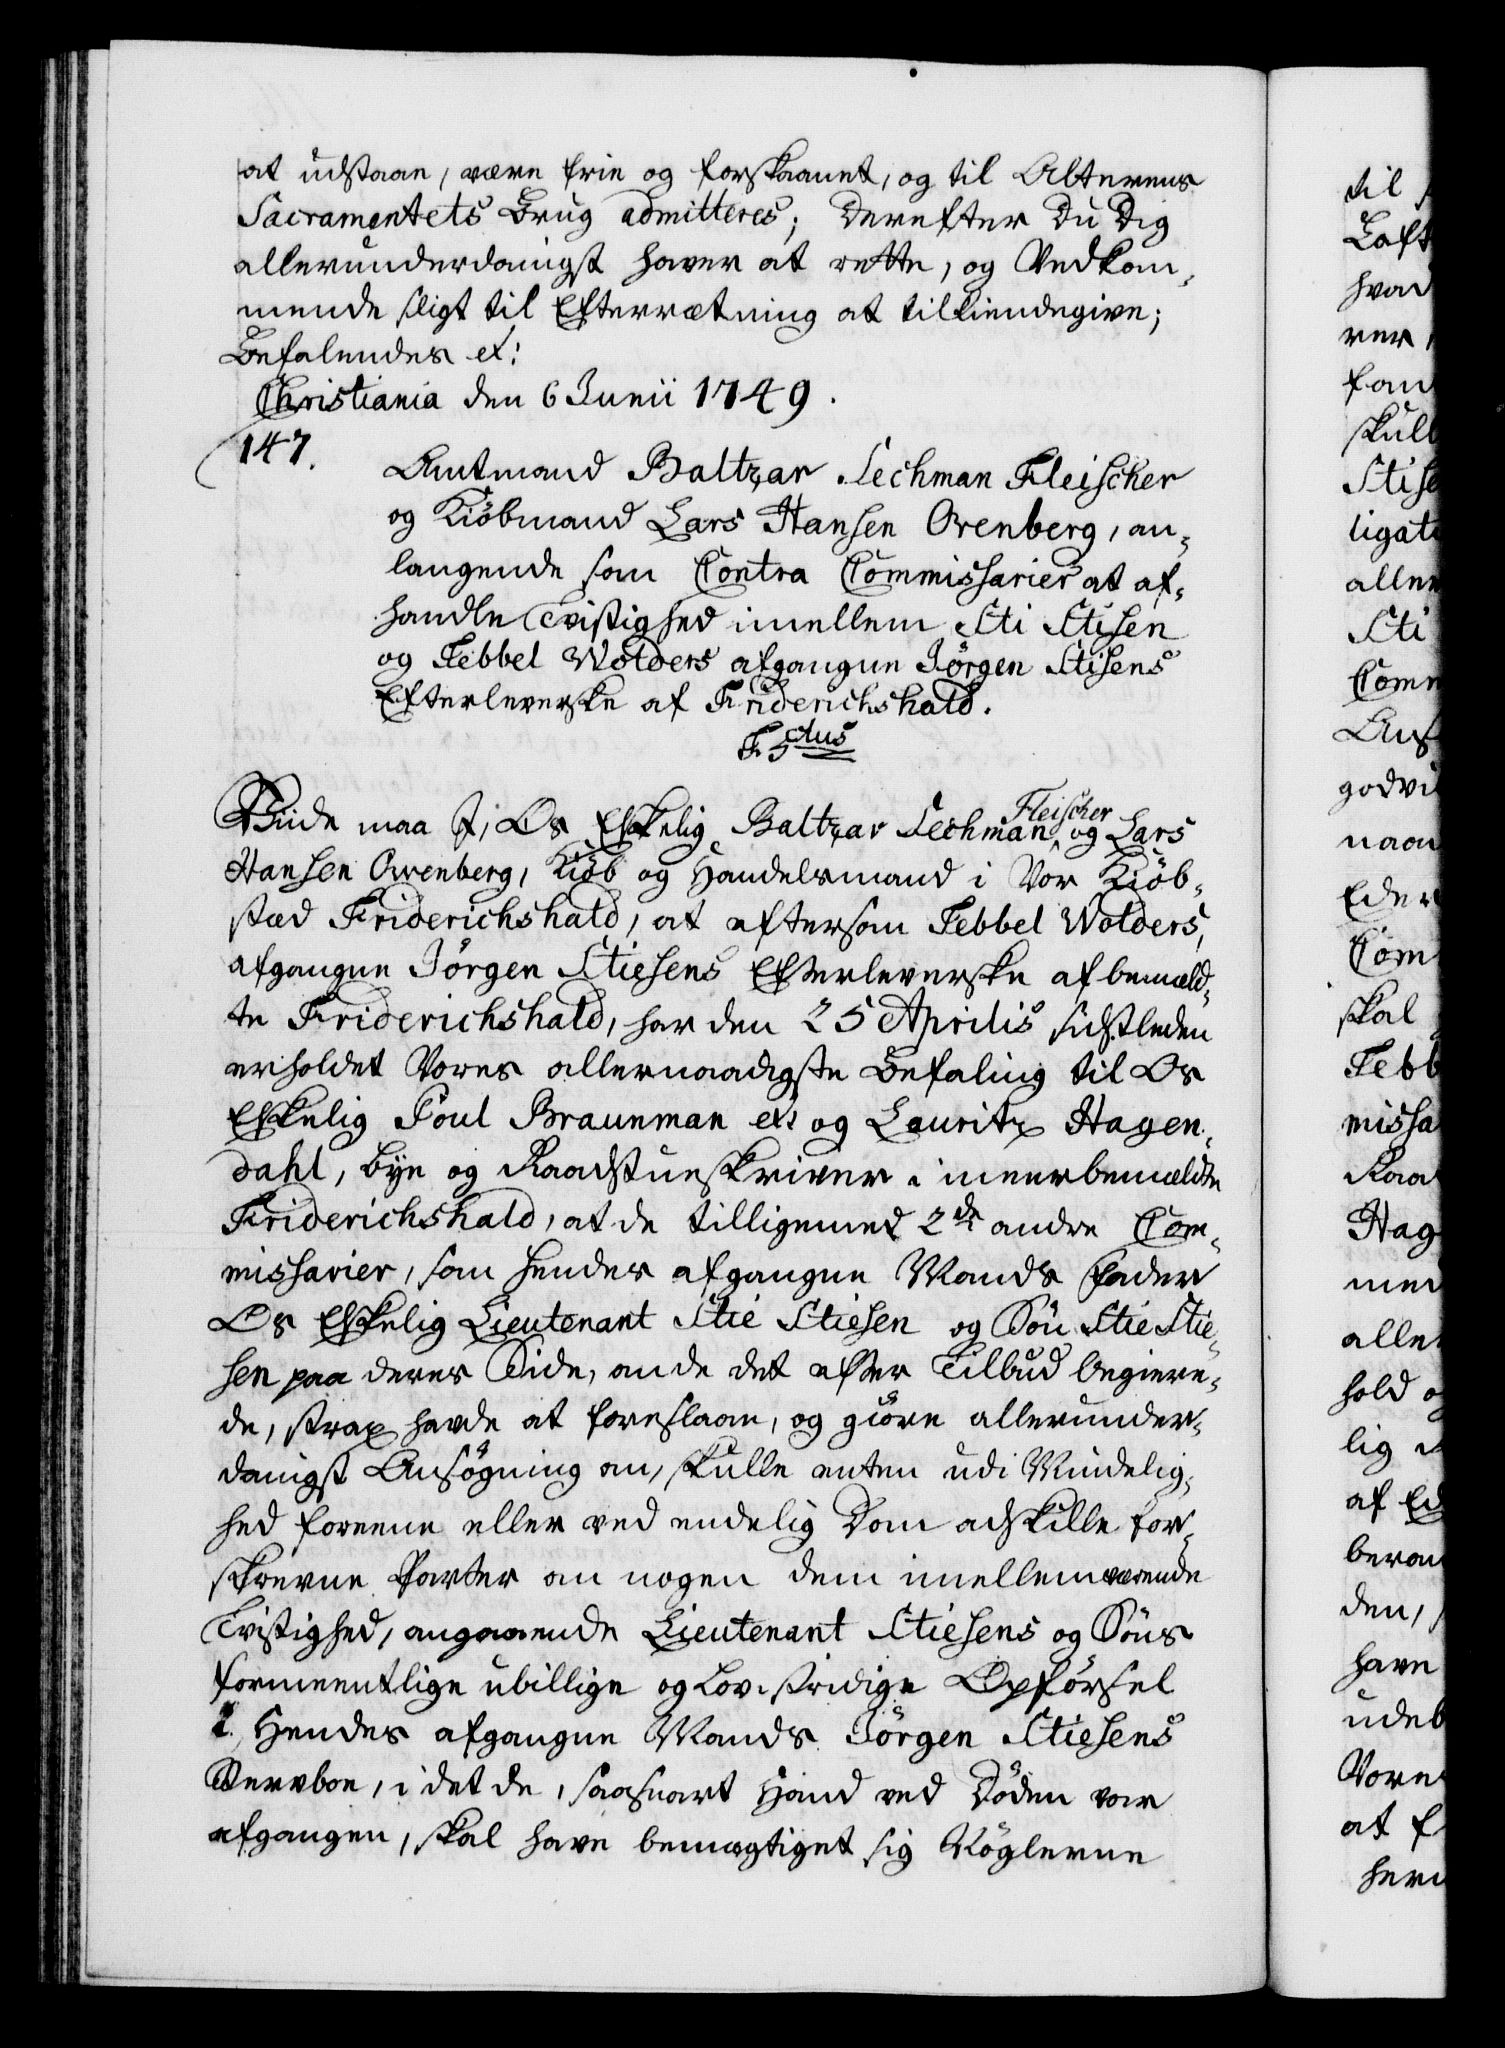 at udstaae, være frie og forskaanet, og til Alterens
Sacramentets Brug admitteres; Derefter Du Dig
allerunderdanigst haver at rette, og Vedkom-
mende sligt til Efterrætning at tilkiendegive;
Befalendes et:
Christiania den 6 Junii 1749.
147.
Amtmand Baltzar Sechman Fleischer
og Kiöbmand Lars Hansen Orenberg, an-
langende som Contra Commissarier at af-
handle Tvistighed imellem Sti Stisen
og Tebbel Wolders afgangne Jörgen Stisens
Efterleverske af Friderichshald.
F. 5tus
Viide maa I, Os Elskelig Baltzar Sechman Fleischer og Lars
Hansen Orenberg, Kiöb og Handelsmand i Vor Kiöb-
stæd Friderichshald, at eftersom Tebbel Wolders,
afgangne Jörgen Stiesens Efterleverske af bemeld-
te Friderichshald, har den 25 Aprilis sidstleden
erholdet Vores allernaadigste Befaling til Os
Elskelig Poul Braunman et: og Lauritz Hagen-
dahl, Bye og Raadstueskriver i meerbemældte
Friderichshald, at de tilligemed 2de andre Com-
missarier, som hendes afgangne Mands Fader
Os Elskelig Lieutenant Stie Stiesen og Sön Stie Stie-
sen paa deres Side, om de det efter Tilbud begiere-
de, strax havde at foreslaae, og giöre allerunder-
danigst Ansögning om, skulle enten udi Mindelig-
hed foreene eller ved endelig Dom adskille for-
skrevne Parter om nogen dem imellemværende
Tvistighed, angaaende Lieutenant Stiesens og Söns
formeentlige ubillige og Lov-stridige Opförsel
i Hendes afgangne Mands Jörgen Stiesens
Stervboe, i det de, saasnart Hand ved Döden var
afgangen, skal have bemægtiget sig Nöglerne